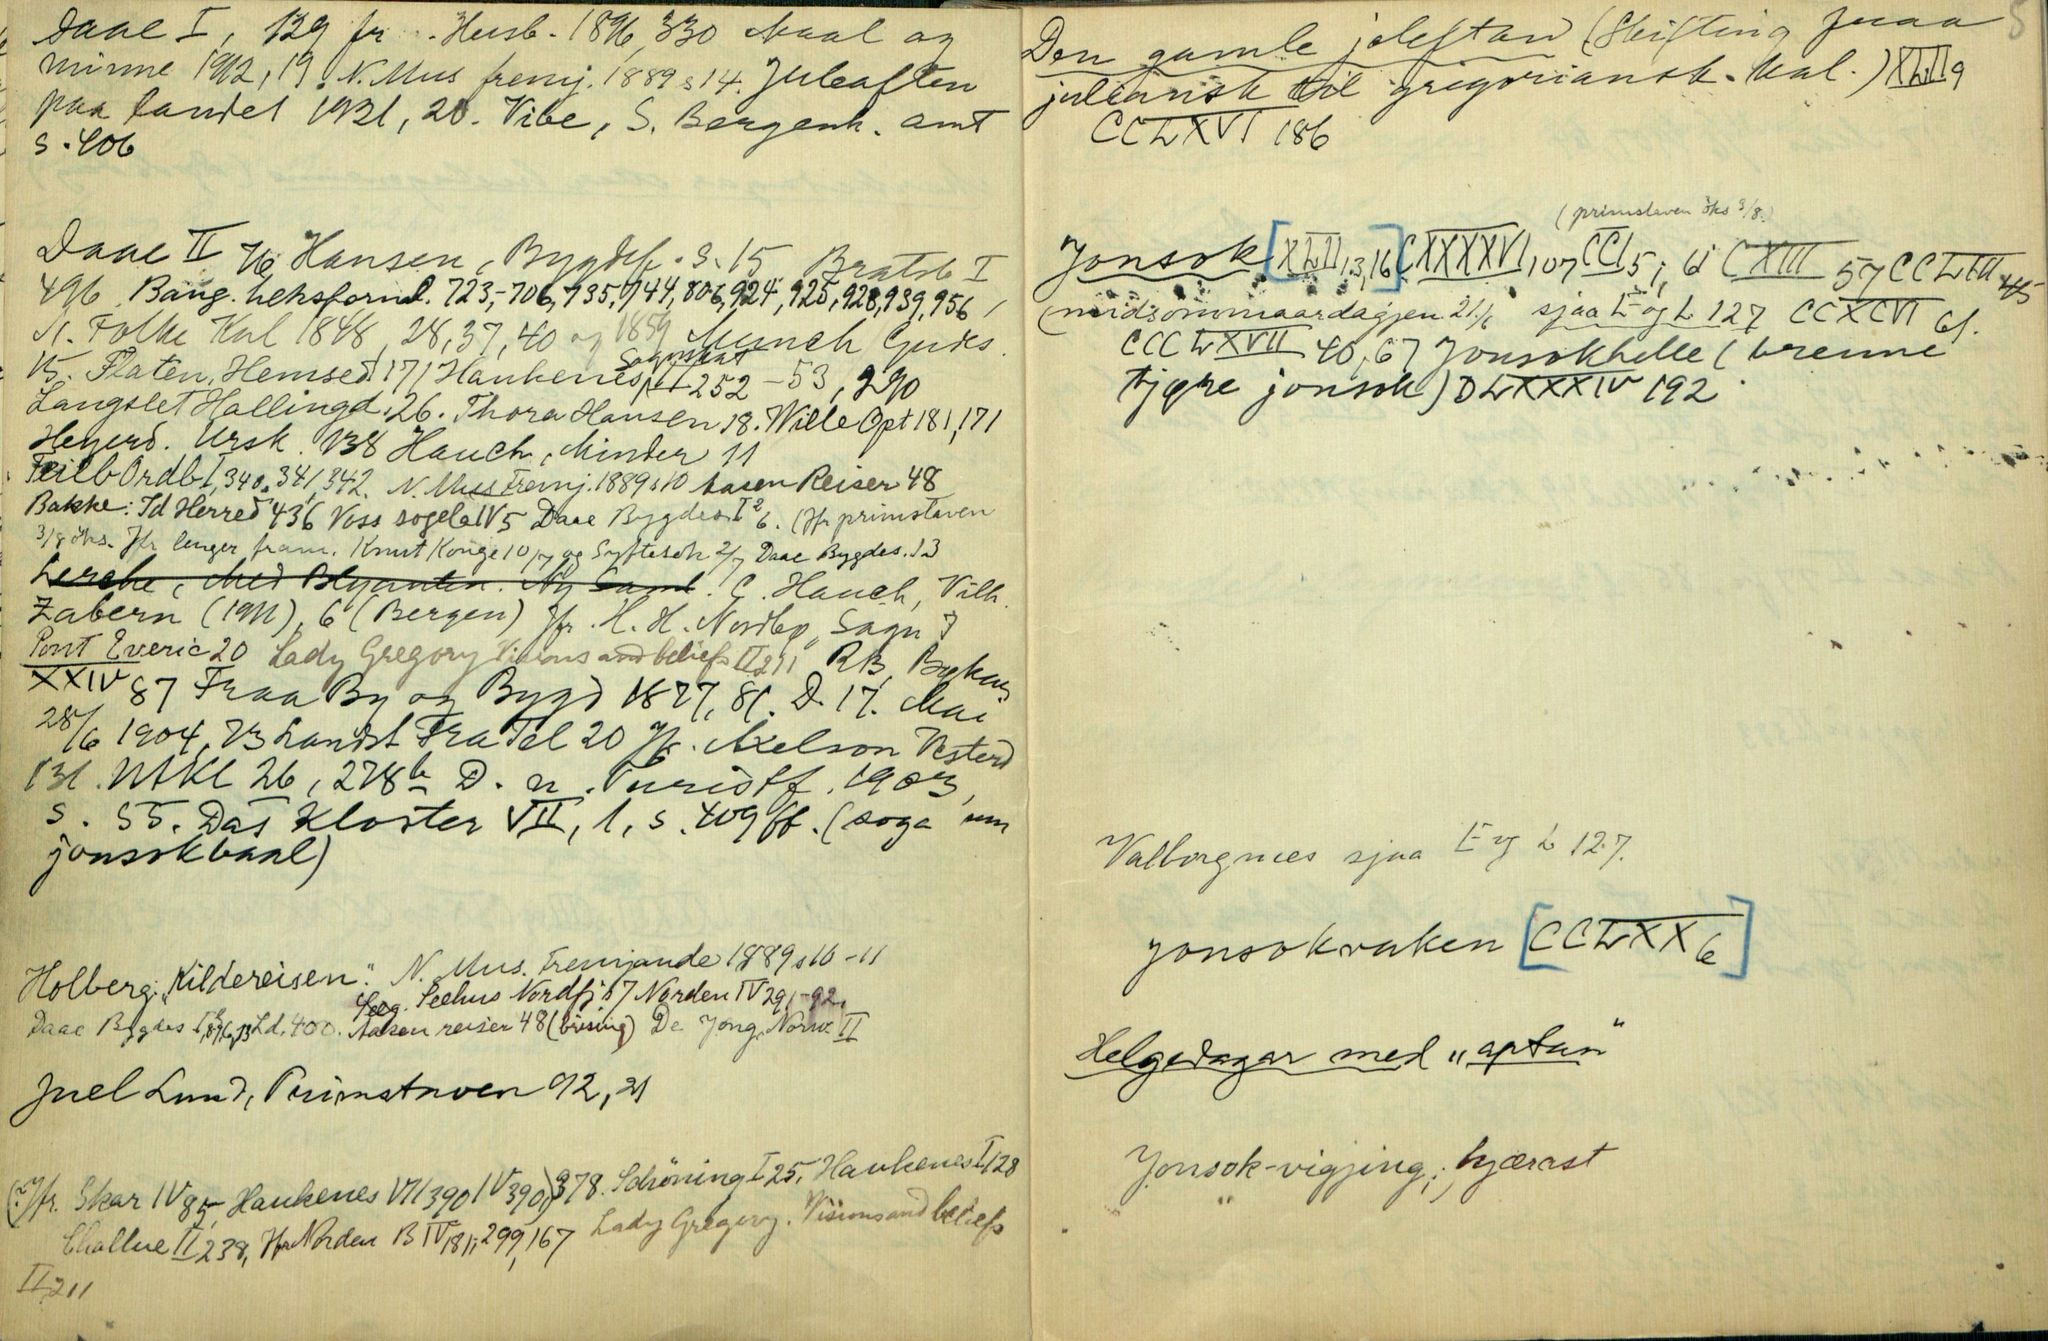 Daae I, 129 fr . Husb. 1896, 330 Maal og
minne 1912, 19. N. Mus fremj. 1889 s 14. Juleaften
paa landet 1921, 20. Vibe, S. Bergenh. amt
s. 406
Daae II 76 Hansen, Bygdef. s. 15 Bratsb I
496 Bang. heksforml. 723,-706,735,744,806,924,925,928,939,956,
N. Folke Kal 1848, 28,37,40 og 1859 Munch Gudes.
15. Flaten, Hemsed. 171 Haukenes, 252-53, 290
Langslet Hallingd. 26. Thora Hansen 18. Wille Opt 181,171
Heyerd. Ursk. 138 Hauch, Minder 11
Feilb Ordb I, 340. 341, 342. N. Mus Fremj. 1889 s 10 Aasen Reiser 48
Bakke: Id Herred 436 Voss sogela IV 5 Daae Bygdes I² 6. (Jfr primstaven
3/8 øks. Jfr lenger fram. Knut Konge 10/7 og Syftesok 2/7 Daae Bygdes. 13
Lerche, Med Blyanten. Ny Saml. C. Hauch, Vilh.
Zabern (1911), 6 (Bergen) Jfr. H. H. Nordbø, Sagn 7
Pont Everic 20 Lady Gregory Visions and beliefs II 211 RB
XXIV 87 Fraa By og Bygd 1877, 81. D. 17. Mai
28/6 1904, 73 Landst Fra Tel 20 Jfr. Axelson Vesterd
131. NFKl 26, 278 b D. n. Turistf. 1903,
s. 55. Das Kloster VII, 1, s. 409 ff. (soga um
jonsokbaal)
Holberg: "Kildereisen". N. Mus. Fremjande 1889 s 10-11
Seehus Nordfj 87 Norden IV 291-92.
Daae Bygdes I Ld. 400. Aasen reiser 48 (brising) De Jong, Norw II
Juel Lund, Primstaven 92, 21
(?) Jfr. Skar IV 85, Haukenes VII 390 IV 390,) 378. Schöning I 25, Haukenes I 128
II 238, Norden B IV, 181, 299, 167 Lady Gregory. Visions and beliefs
II, 211
5
Den gamle joleftan (Skifting fraa
juliansk til grigoriansk. Kal.) XLII 9
CCLXVI 186
(primstaven øks 3/8.)
Jonsok [XLII, 3, 16] CXXXXVI, 107 CCI 5; 6 CXIII 57 CCLIII 45
(midsommaardagjen 21/6 sjaa E og L 127 CCXCVI 61.
CCCLXVII 40, 67 Jonsokhelle (brenne
tjøre jonsok) DLXXXIV 192.
Valborgmes sjaa E og L 127.
Jonsokraken [CCLXX 6]
Helgedagar med "aptan"
Jonsok-vigjing; kjærast
"